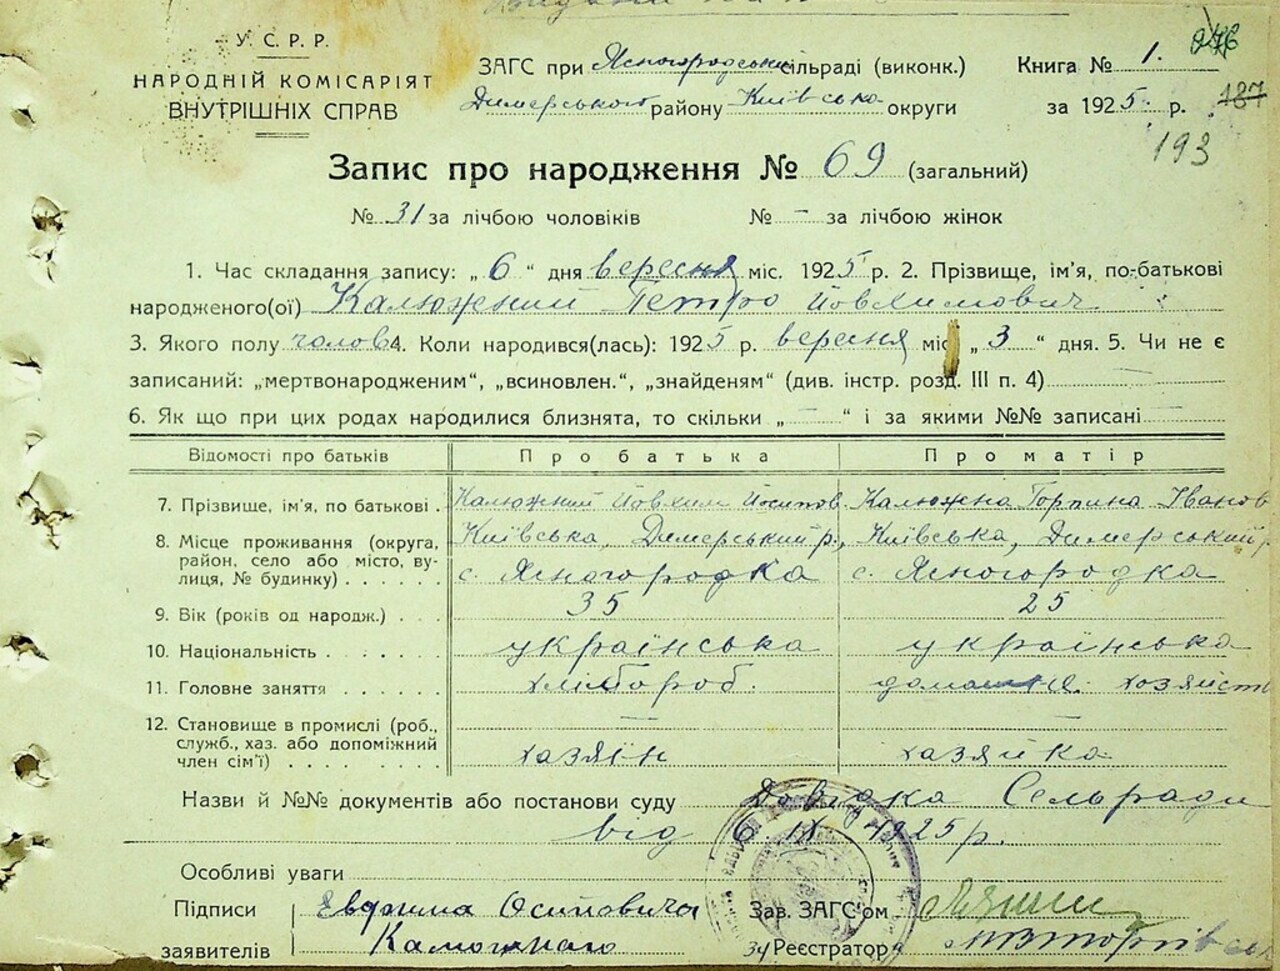 У. С. Р. Р.
НАРОДНІЙ КОМІСАРІЯТ
ВНУТРІШНІХ СПРАВ
ЗАГС при Ясногородській сільраді (виконк.)
Димерського району Київська округи
Книга № 1.
за 1925 р.
276
187
193
Запис про народження № 69 (загальний)
№ 31 за лічбою чоловіків № – за лічбою жінок
1. Час складання запису: „6“ дня вересня міс. 1925 р. 2. Прізвище, ім'я, по-батькові
народженого(ої) Калюжний Петро Йовхимович
3. Якого полу чолов 4. Коли народився(лась): 1925 р. вересня міс „3“ дня. 5. Чи не є
записаний: „мертвонародженим“, „всиновлен.“, „знайденям“ (див. інстр. розд. III п. 4) —
6. Як що при цих родах народилися близнята, то скільки „—“ і за якими №№ записані —
Відомості про батьків Про батька Про матір
7. Прізвище, ім'я, по батькові . Калюжний Йовхим Йосипов Калюжна Горпина Іванов
8. Місце проживання (округа, Київська, Димерський р., Київська, Димерський р.
район, село або місто, ву-
лиця, № будинку) . . . . . с. Ясногородка с. Ясногородка
9. Вік (років од народж.) . . . 35 25
10. Національність . . . . . . українська українська
11. Головне заняття . . . . . . хлібороб. домашнє хозяйств
12. Становище в промислі (роб., — —
служб., хаз. або допоміжний
член сім'ї) . . . . . . . . хазяїн хазяйка
Назви й №№ документів або постанови суду Довідка Сельради
від 6. IX 1925 р.
Особливі уваги
Підписи Осиповича Зав. ЗАГС'ом
заявителів Калюжного Реєстратор